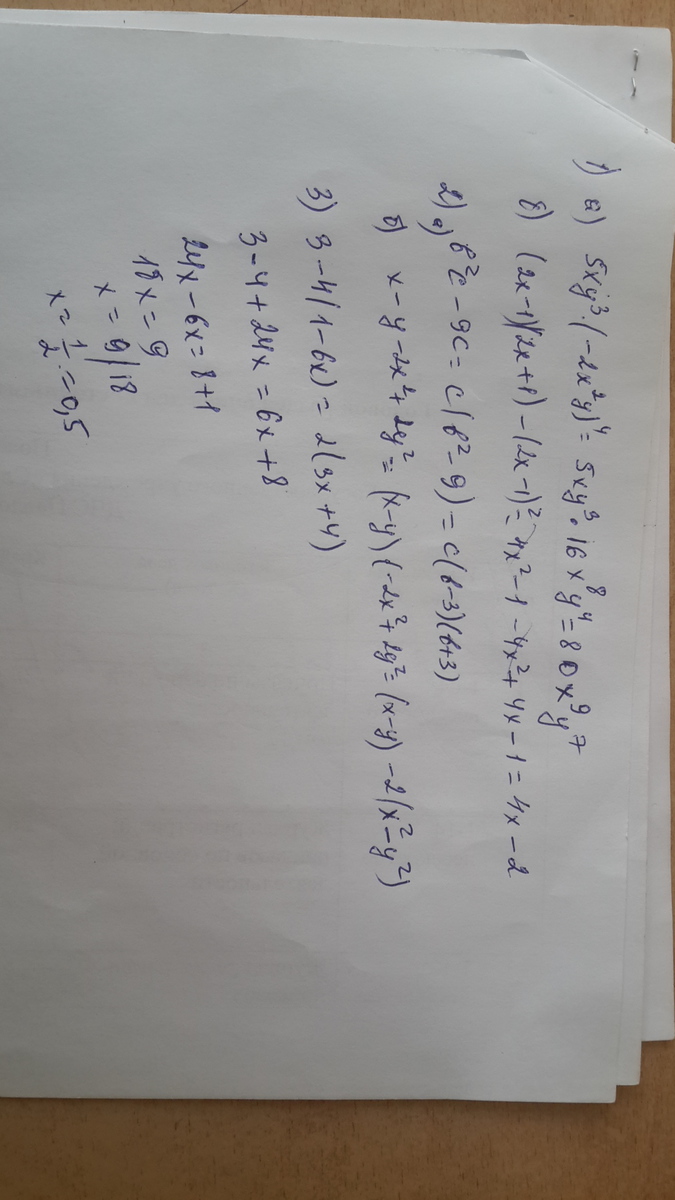 1) а) 5xy³·(-2x²y)⁴ = 5xy³·16x⁸y⁴ = 80x⁹y⁷
б) (2x-1)(2x+1)-(2x-1)² = 4x²-1-4x²+4x-1 = 4x-2
2) а) b²c-9c = c(b²-9) = c(b-3)(b+3)
б) x-y-2x²+2y² = (x-y)(-2x²+2y² = (x-y)-2(x²-y²)
3) 3-4(1-6x) = 2(3x+4)
3-4+24x = 6x+8
24x-6x = 8+1
18x = 9
x = 9|18
x = 1/2 = 0,5